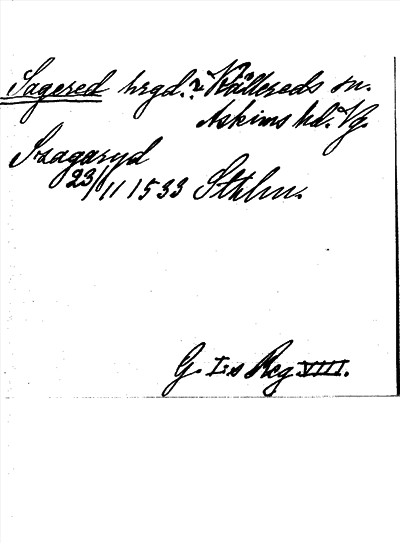 Sagered hrgd. ? Kållereds sn.
Askims hd. Vg.
Szagaryd
23/11 1533 Sthlm.
G. I:s Reg. VIII.